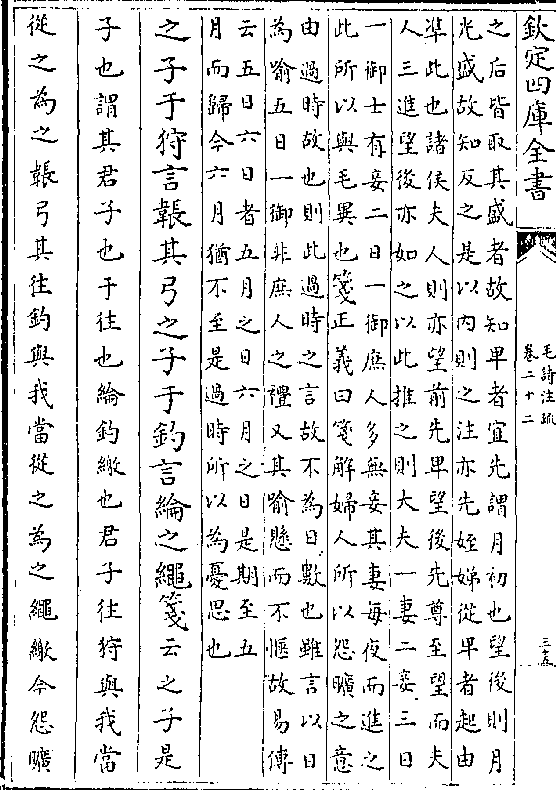 欽定四庫全書
毛詩注疏
卷二十二
三十五
之后皆取其盛者故知卑者宜先謂月初也望後則月
光盛故知反之是以内則之注亦先姪娣從卑者起由
凖此也諸侯夫人則亦望前先卑望後先尊至望而夫
人三進望後亦如之以此推之則大夫一妻二妾三日
一御士有妾二日一御庶人多無妾其妻每夜而進之
此所以與毛異也箋正義曰箋解婦人所以怨曠之意
由過時故也則此過時之言故不為日數也雖言以日
為喻五日一御非庶人之禮又其喻懸而不愜故易傳
云五日六日者五月之日六月之日是期至五
月而歸今六月猶不至是過時所以為憂思也
之子于狩言韔其弓之子于釣言綸之繩箋云之子是
子也謂其君子也于往也綸釣繳也君子往狩與我當
從之為之韔弓其往釣與我當從之為之繩繳今怨曠